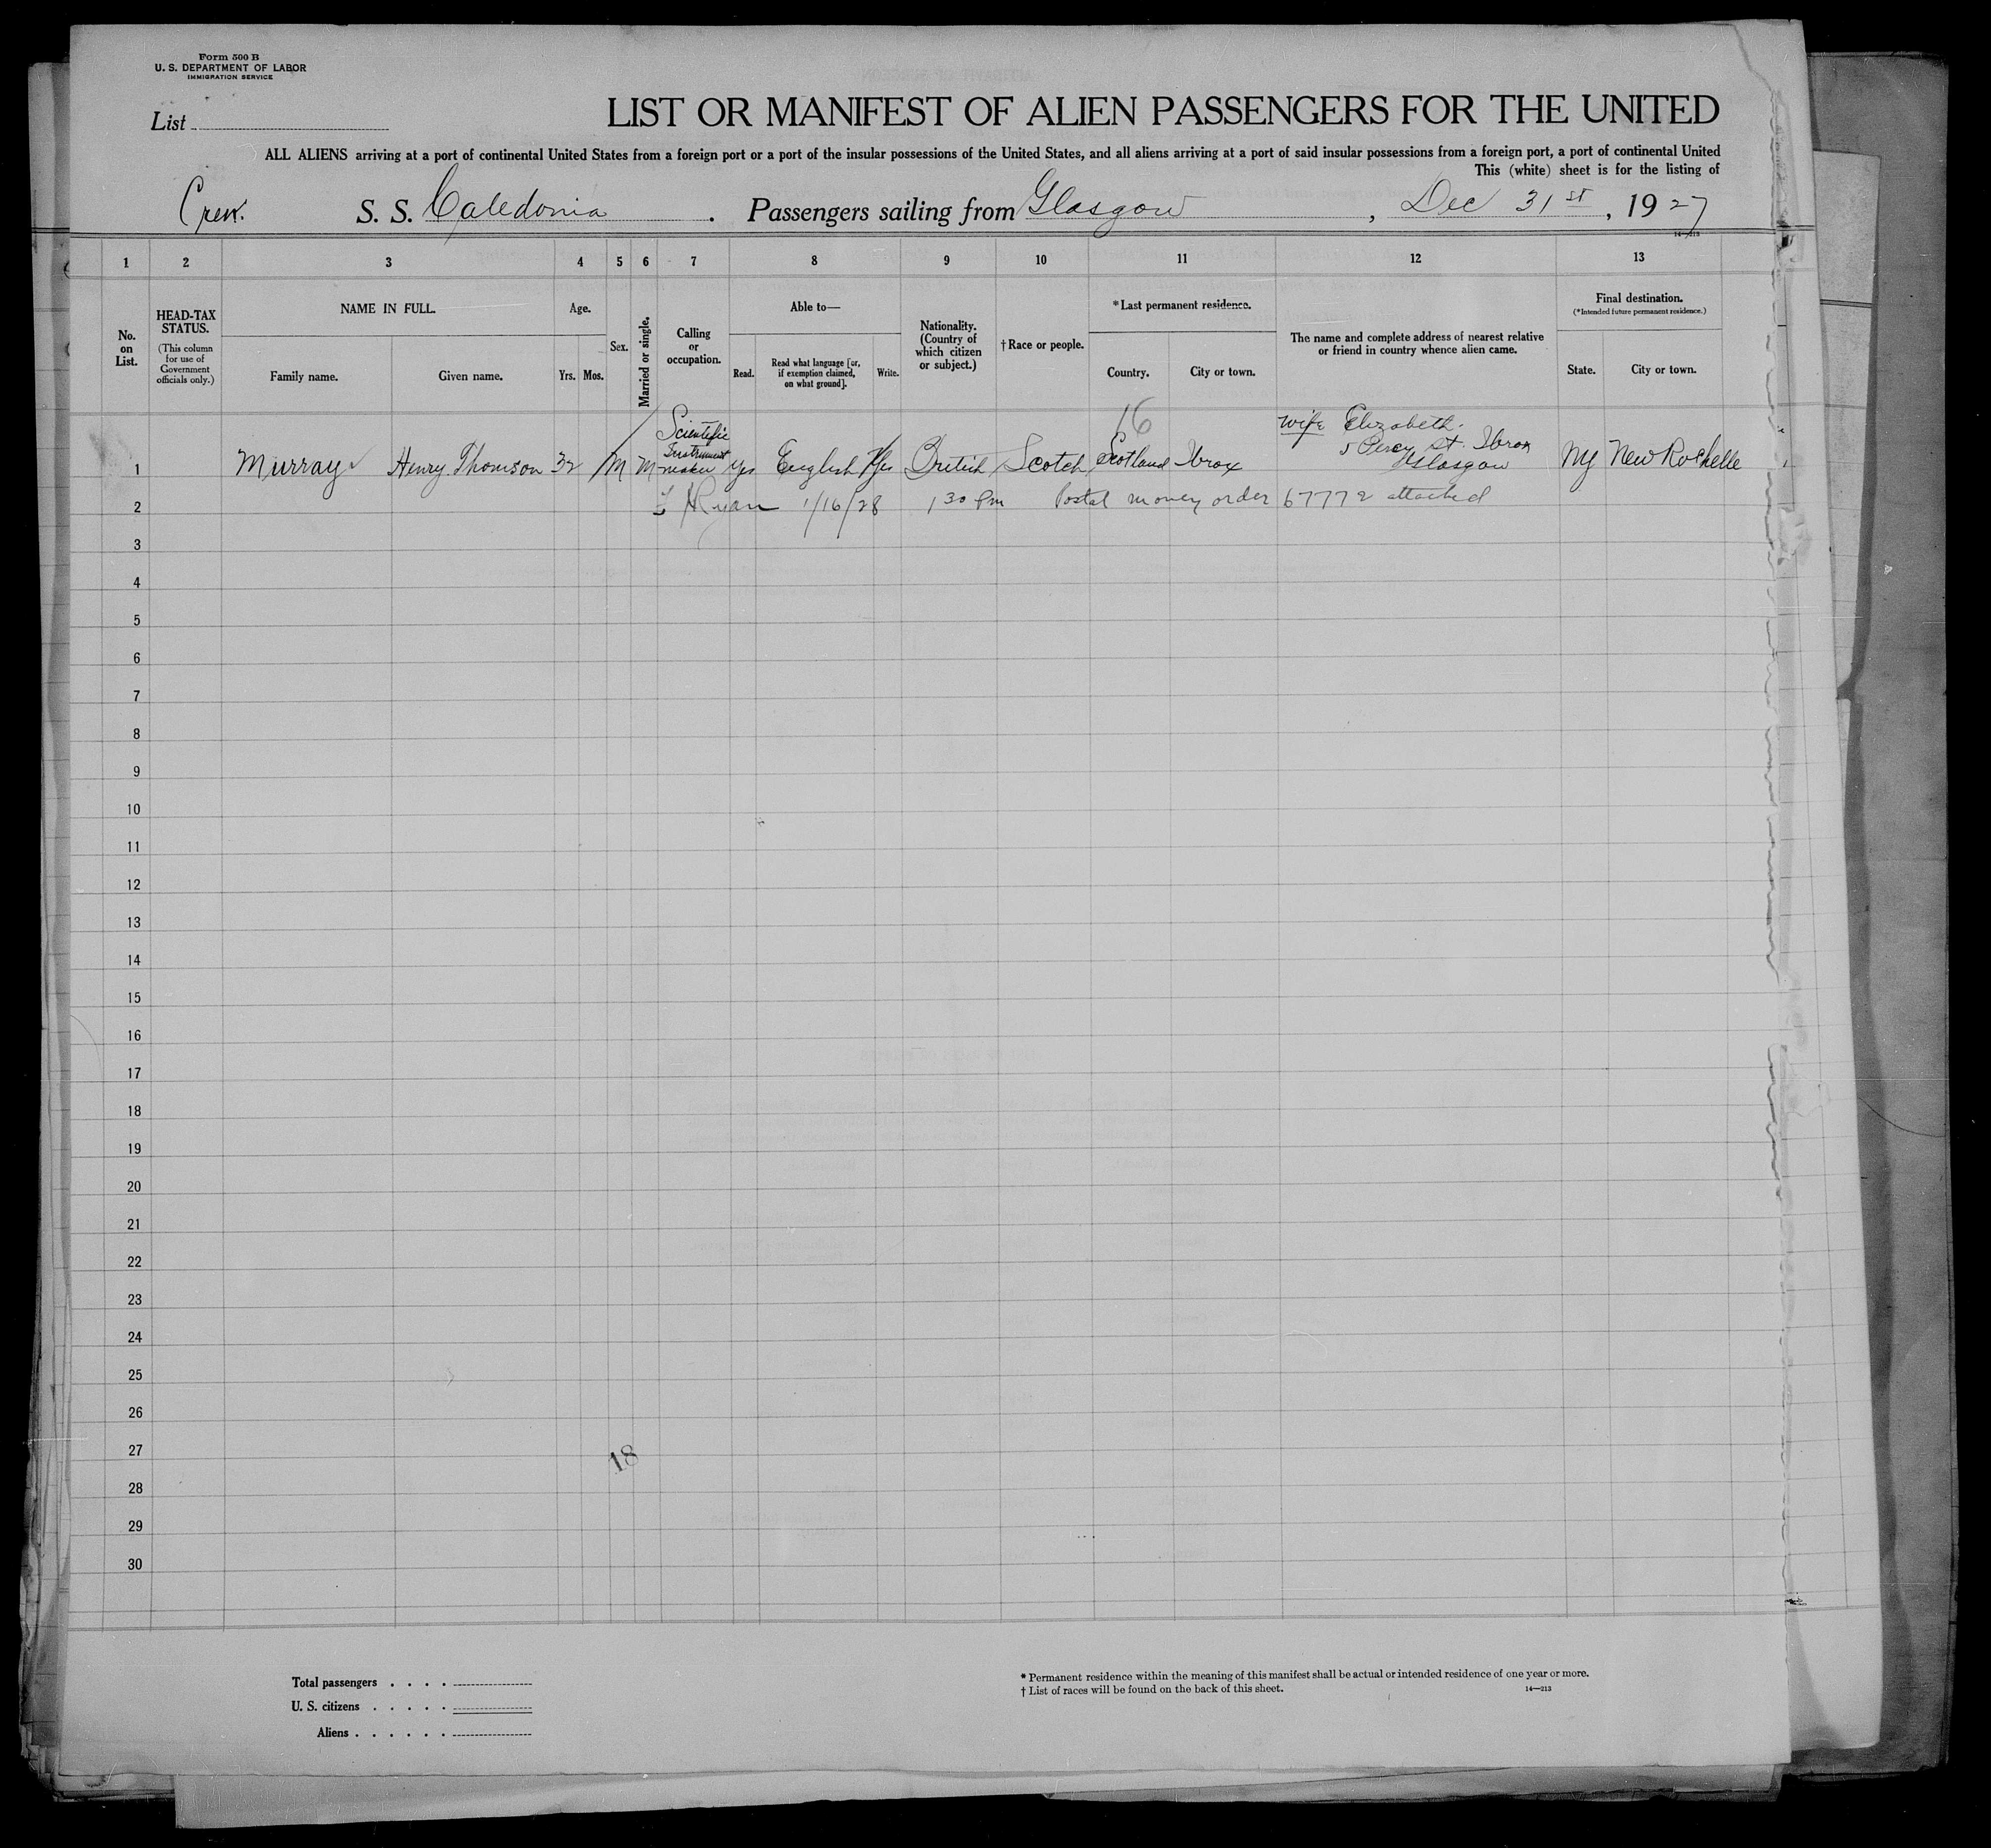 Form 500 B
U. S. DEPARTMENT OF LABOR
IMMIGRATION SERVICE
List
LIST OR MANIFEST OF ALIEN PASSENGERS FOR THE UNITED
ALL ALIENS arriving at a port of continental United States from a foreign port or a port of the insular possessions of the United States, and all aliens arriving at a port of said insular possessions from a foreign port, a port of continental United
This (white) sheet is for the listing of
Crew. S. S. Caledonia . Passengers sailing from Glasgow , Dec 31st , 1927
14—213
1 2 3 4 5 6 7 8 9 10 11 12 13
No. on List.
HEAD-TAX STATUS.
(This column for use of Government officials only.)
NAME IN FULL.
Family name. Given name.
Age.
Yrs. Mos.
Sex.
Married or single.
Calling or occupation.
Able to—
Read. Read what language [or, if exemption claimed, on what ground]. Write.
Nationality. (Country of which citizen or subject.)
†Race or people.
*Last permanent residence.
Country. City or town.
The name and complete address of nearest relative or friend in country whence alien came.
Final destination.
(*Intended future permanent residence.)
State. City or town.
16
1 Murray Henry Thomson 32 M M Scientific Instrument maker Yes English Yes British Scotch Scotland Ibrox wife Elizabeth. 5 Percy St. Ibrox Glasgow NY New Rochelle
2 Ryan 1/16/28 1 30 Pm Postal money order 67772 attached
3
4
5
6
7
8
9
10
11
12
13
14
15
16
17
18
19
20
21
22
23
24
25
26
27
18
28
29
30
Total passengers . . . .
U. S. citizens . . . . .
Aliens . . . . . .
* Permanent residence within the meaning of this manifest shall be actual or intended residence of one year or more.
† List of races will be found on the back of this sheet.
14—213